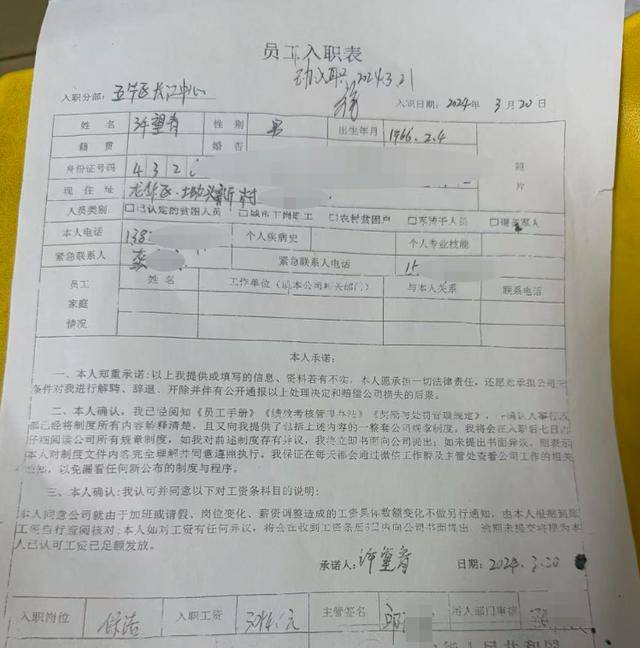 员工入职表
2024.3.21
入职分部：五华区长江中心 入职日期：2024年3月20日
姓名 许望春 性别 男 出生年月 1966.2.4
籍贯 婚否 照片
身份证号码 432
现住址 新村
人员类别 □已认定的贫困人员 □城市下岗职工 □农村贫困户 □军人
本人电话 138 个人疾病史 个人专业技能
紧急联系人 紧急联系人电话 15
员工家庭情况 姓名 工作单位（ 本公司 部门） 与本人关系 联系电话
本人承诺：
一、本人郑重承诺：以上我提供或填写的信息、资料若有不实，本人愿承担一切法律责任，还愿意承担公司无
条件对我进行解聘、辞退、开除并伴有公开通报以上处理决定和赔偿公司损失的后果。
二、本人确认，我已经阅知《员工手册》《绩效考核管理办法》《奖惩与处罚管理规定》，
都已经将制度所有内容解释清楚，且又向我提供了包括上述内容的一整套公司规章制度。我将会在入职后七日内
仔细阅读公司所有规章制度，如我对前述制度存有异议，我将立即书面向公司提出；如未提出书面异议，则表示
本人对制度文件内容完全理解并同意遵照执行。我保证在每天都会通过微信工作群及主管处查看公司工作的相关
通知，以免漏看任何新公布的制度与程序。
三、本人确认：我认可并同意以下对工资条科目的说明：
本人同意公司就由于加班或请假、岗位变化、薪资调整造成的工资具体数额变化不做另行通知，由本人根据
工资自行查阅核对；本人如对工资有任何异议，将会在收到工资条后3日内向公司书面提出，逾期未提交将视为本
人已认可工资已足额发放。
承诺人：许望春 日期：2024.3.20
入职岗位 保洁 入职工资 元 主管签名 用人部门审核